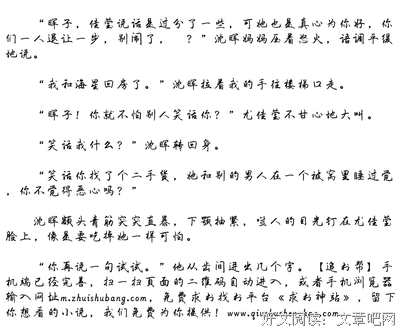 “晖子，佳莹说话是过分了一些，可她也是真心为你好，你
们一人退让一步，别闹了， ？”沈晖妈妈压着怒火，语调平缓
地说。
“我和海星回房了。”沈晖拉着我的手往楼梯口走。
“晖子！你就不怕别人笑话你？”尤佳莹不甘心地大叫。
“笑话我什么？”沈晖转回身。
“笑话你找了个二手货，她和别的男人在一个被窝里睡过觉
，你不觉得恶心吗？”
沈晖额头青筋突突直暴，下颚抽紧，噬人的目光钉在尤佳莹
脸上，像是要吃掉她一样可怕。
“你再说一句试试。”他从齿间迸出几个字。【追书帮】手
机端已经完善，扫一扫页面的二维码自动进入，或者手机浏览器
输入网址m.zhuishubang.com，免费求书找书平台《求书神站》，留下
你想看的小说，我们免费为你提供！www.qiushu
好文阅读：文章吧网